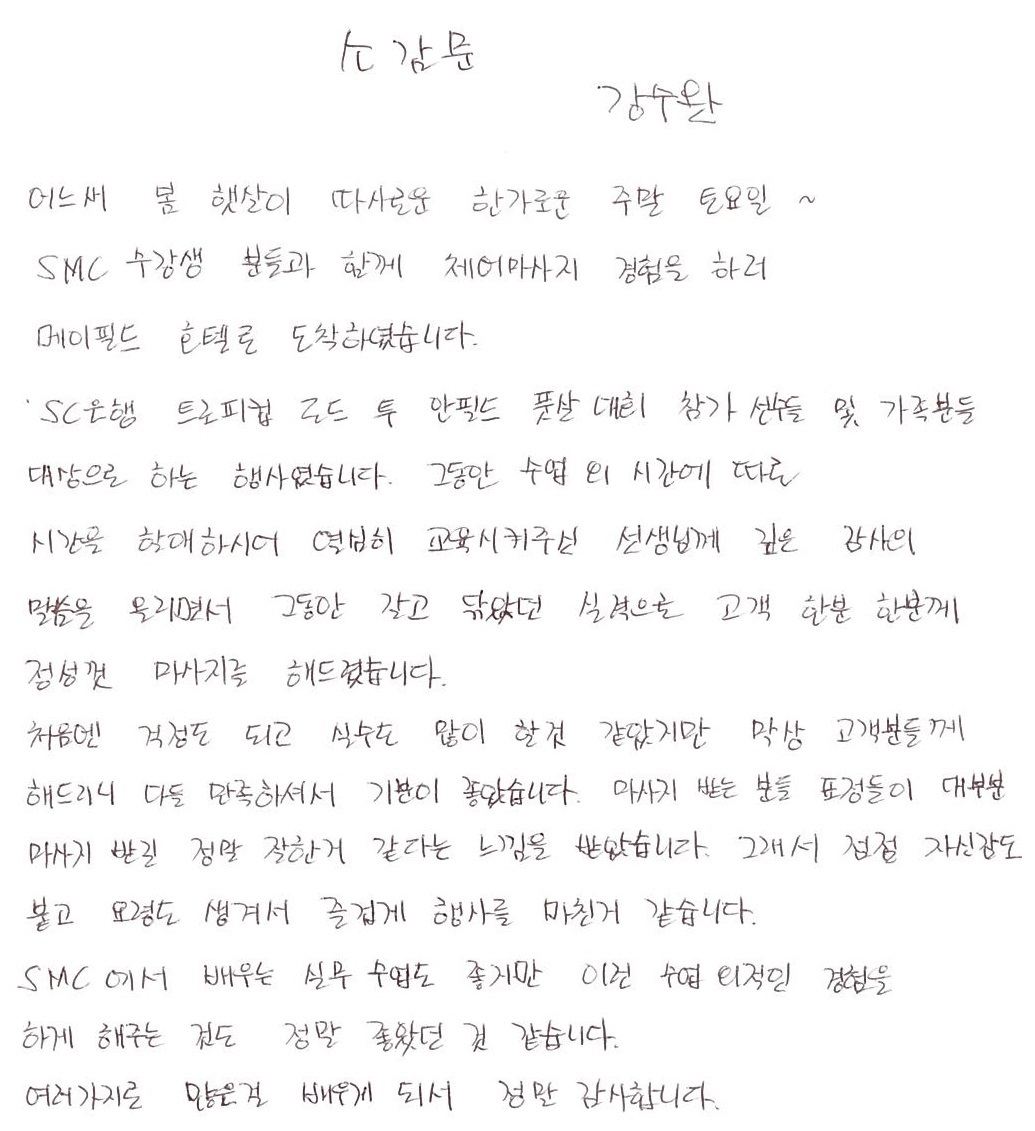 소감문
강수완
어느써 봄 햇살이 따사로운 한가로운 주말 토요일 ~
SMC 수강생 분들과 함께 체어마사지 경험을 하러
메이필드 호텔로 도착하였습니다.
SC은행 트로피컵 로드 투 안필드 풋살 대회 참가 선수들 및 가족분들
대상으로 하는 행사였습니다. 그동안 수업 외 시간에 따로
시간을 할애하시어 열심히 교육시켜주신 선생님께 깊은 감사의
말씀을 올리면서 그동안 갈고 닦았던 실력으로 고객 한분 한분께
정성껏 마사지를 해드렸습니다.
처음엔 걱정도 되고 실수도 많이 할것 같았지만 막상 고객분들께
해드리니 다들 만족하셔서 기분이 좋았습니다. 마사지 받는 분들 표정들이 대부분
마사지 받길 정말 잘한거 같다는 느낌을 받았습니다. 그래서 점점 자신감도
붙고 요령도 생겨서 즐겁게 행사를 마친거 같습니다.
SMC에서 배우는 실무 수업도 좋지만 이런 수업 외적인 경험을
하게 해주는 것도 정말 좋았던 것 같습니다.
여러가지로 많은걸 배우게 되서 정말 감사합니다.